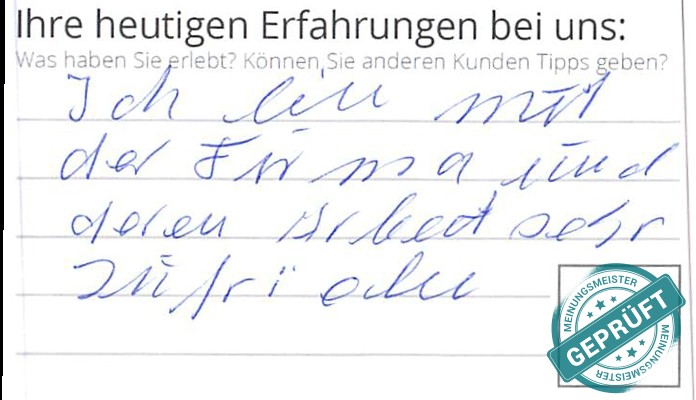 Ihre heutigen Erfahrungen bei uns:
Was haben Sie erlebt? Können Sie anderen Kunden Tipps geben?
Ich bin mit
der Firma und
deren Arbeit sehr
zufrieden
MEINUNGSMEISTER
GEPRÜFT
MEINUNGSMEISTER